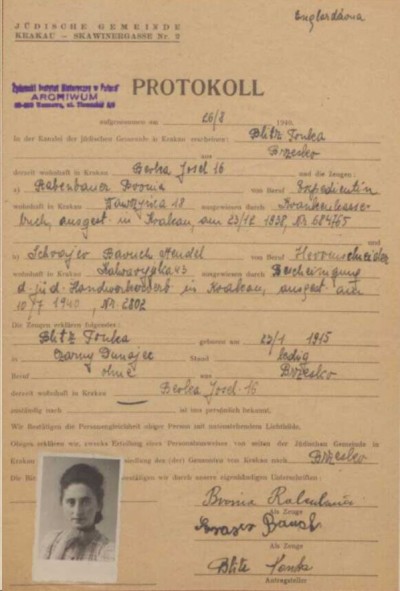 JÜDISCHE GEMEINDE
KRAKAU - SKAWINERGASSE Nr. 2
Żydowski Instytut Historyczny w Polsce
ARCHIWUM
PROTOKOLL
aufgenommen am 26/8 1940.
In der Kanzlei der jüdischen Gemeinde in Krakau erscheint: Blitz Tonka
aus Brzesko
derzeit wohnhaft in Krakau Berka Josel 16 und die Zeugen:
a) Rabenbauer Bronia von Beruf Expedientin
wohnhaft in Krakau Wawrzyńca 18 ausgewiesen durch Krankenkasse
buch, ausgest. in Krakau, am 23/12 1938, Nr 684765
und
b) Baruch Mendel von Beruf Herrenschneider
wohnhaft in Krakau Kalwaryjska 43 ausgewiesen durch Bescheinigung
d. jüd. in Krakau, ausgest. am
10/7 1940, Nr. 2802
Die Zeugen erklären folgendes:
Blitz Tonka geboren am 25/1 1915
in Czarny Dunajec Stand ledig
Beruf ohne aus Brzesko
derzeit wohnhaft in Krakau Berka Josel 16
zuständig nach ist uns persönlich bekannt.
Wir bestätigen die Personengleichheit obiger Person mit untenstehendem Lichtbilde.
Obiges erklären wir, zwecks Erteilung eines Personalausweises von seiten der Jüdischen Gemeinde in
Krakau siedlung des (der) Genannten von Krakau nach Brzesko
Die bestätigen wir durch unsere eigenhändigen Unterschriften:
Bronia Rabenbauer
Als Zeuge
Baruch
Als Zeuge
Blitz Tonka
Antragsteller